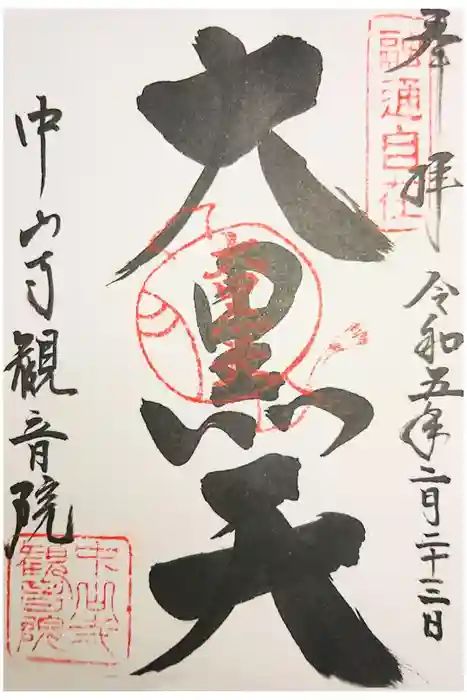 奉拝
融通自在
令和五年二月二十三日
大黒天
大黒天
中山寺観音院
中山寺
観音院